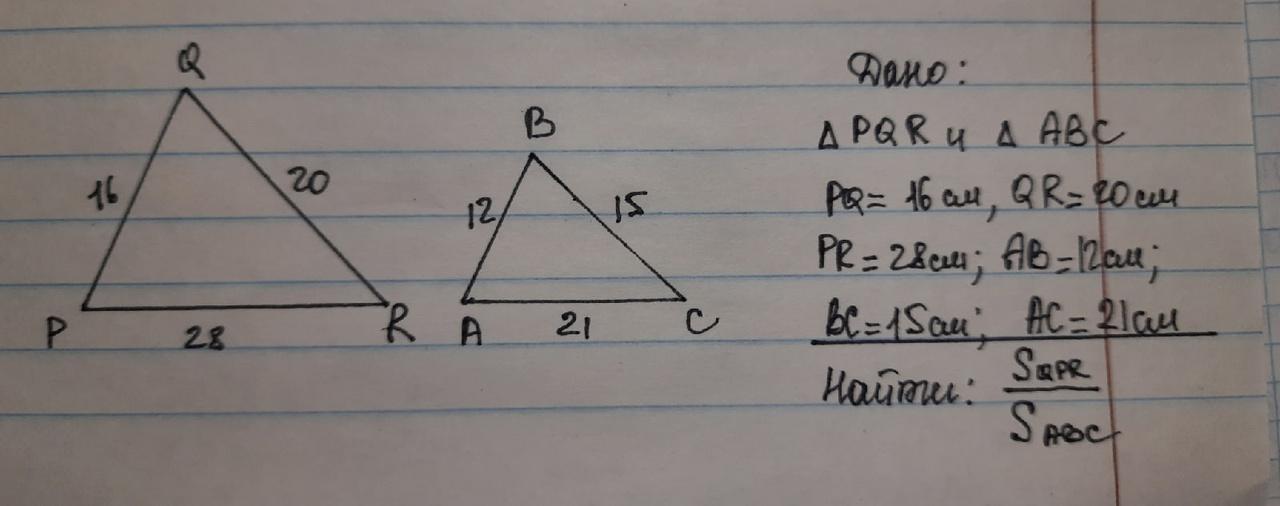 Q
B
16
20
12
15
P
28
R
A
21
C
Дано:
Δ PQR и Δ ABC
PQ= 16 см, QR= 20 см
PR = 28 см; AB = 12 см;
BC = 15 см; AC = 21 см
Найти: S QPR
S ABC